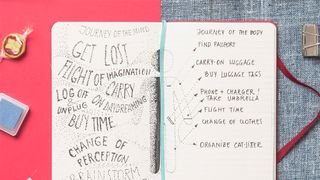 JOURNEY OF THE MIND
GET LOST
FLIGHT OF IMAGINATION
CARRY
LOG OFF
ON DAYDREAMING
UNPLUG
BUY TIME.
CHANGE OF
PERCEPTION.
BRAINSTORM
JOURNEY OF THE BODY
FIND PASSPORT
CARRY-ON LUGGAGE
BUY LUGGAGE TAGS
PHONE + CHARGER!
TAKE UMBRELLA
FLIGHT TIME
CHANGE OF CLOTHES
ORGANISE CAT-SITTER.